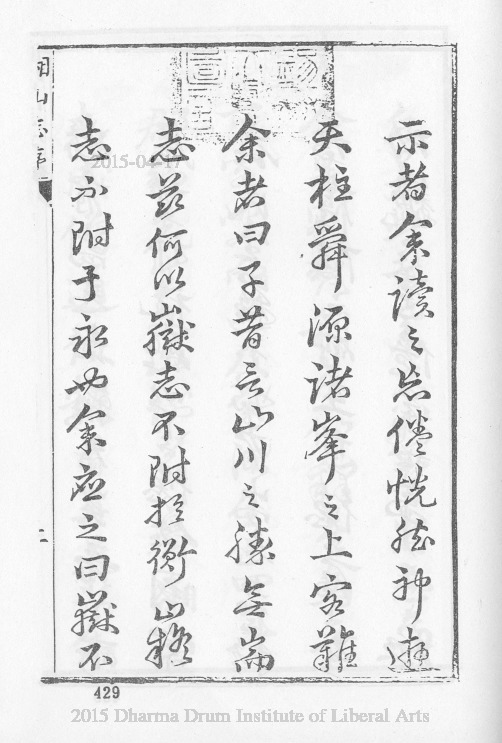 示者余讀之忘倦恍然神遊
天柱舜源諸峯之上客難
余者曰子昔言山川之勝無
志茲何以嶽志不附於衡山
志不附于永也余應之曰嶽不
山志序
二
429
2015 Dharma Drum Institute of Liberal Arts